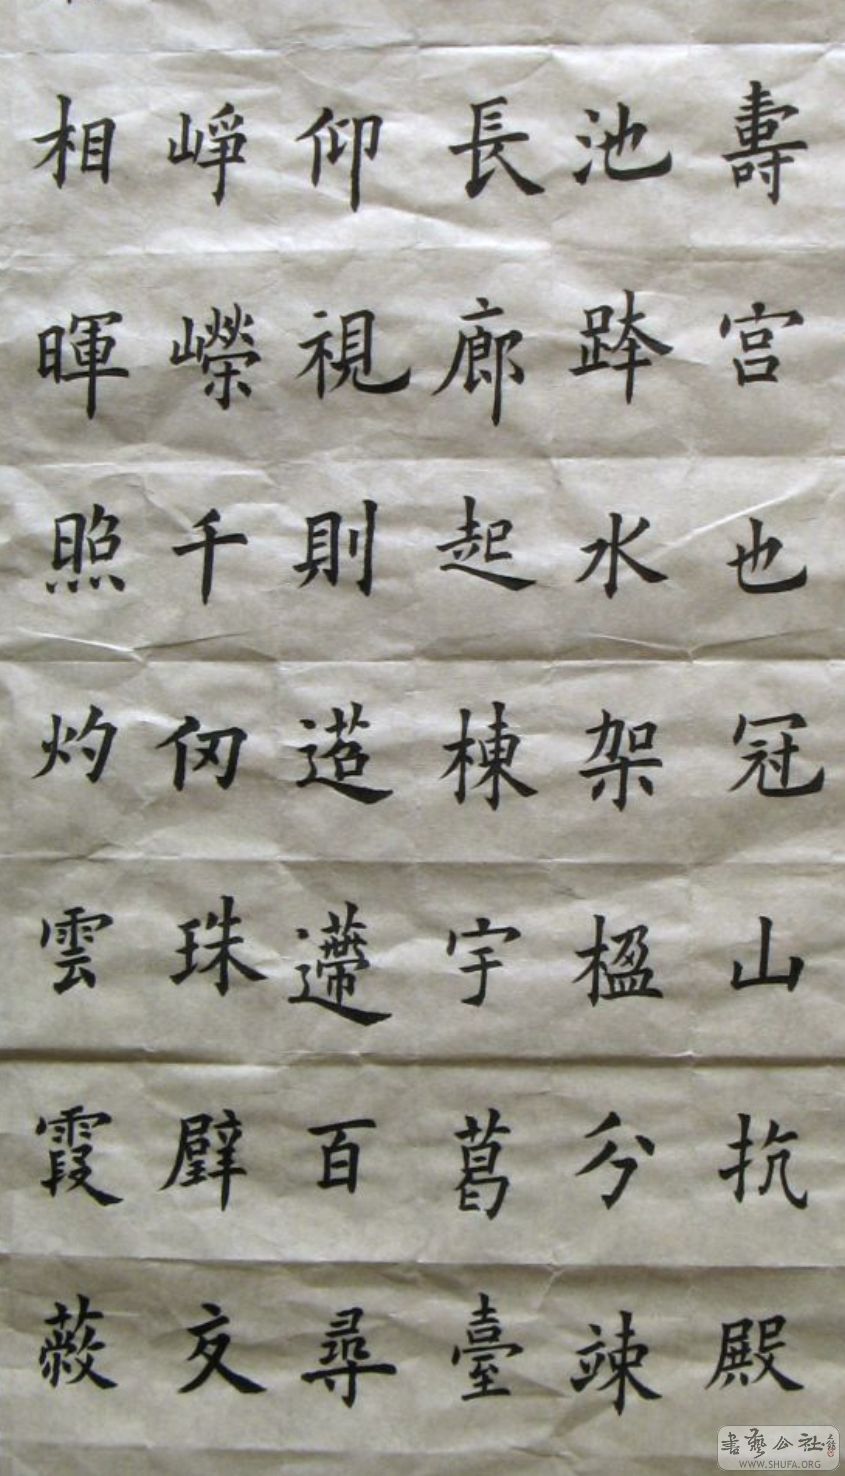 壽宫也冠山抗殿
池跨水架楹分竦
長廊起棟宇葛臺
仰視則迢遰百尋
崢嶸千仞珠璧交
相暉照灼雲霞蔽
書藝公社
WWW.SHUFA.ORG